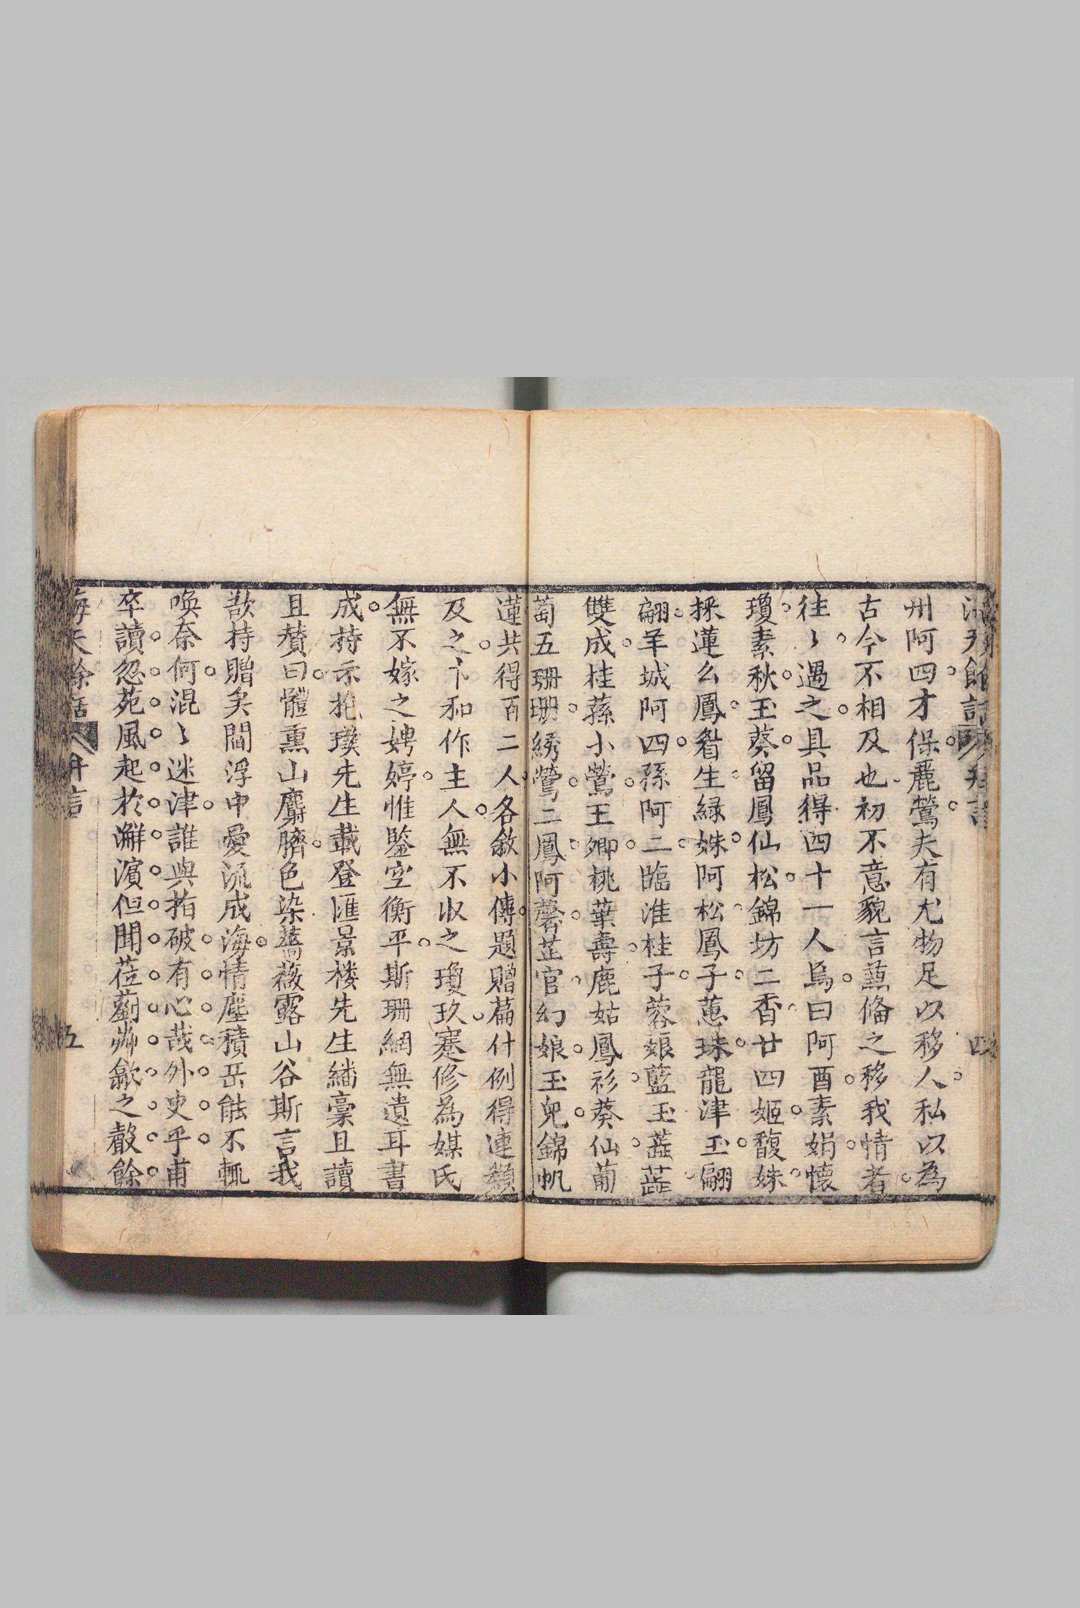 海天餘話
四
州阿四才保麗鶯夫有尤物足以移人私以為
古今不相及也初不意貌言蕉脩之移我情者
往〻遇之具品得四十一人烏曰阿酉素娟懷
瓊素秋玉葵留鳳仙松錦坊二香廿四姬馥姝
採蓮么鳳眉生綠姝阿松鳳子蕙珠龍津玉翩
翩羊城阿四孫阿二臨淮桂子蓉娘藍玉蕋蕋
雙成桂蓀小鶯王卿桃葉壽鹿姑鳳衫葵仙葡
萄五珊珊綉鶯二鳳阿馨芷官幻娘玉兒錦帆
蓮共得百二人各敘小傳題贈篇什例得連類
及之卞和作主人無不收之瓊玖蹇修為媒氏
無不嫁之娉婷惟鑒空衡平斯珊網無遺耳書
成持示抱璞先生載登匯景樓先生繙稾且讀
且贊曰體熏山麝臍色染薔薇露山谷斯言我
歆持贈矣閻浮中愛流成海情塵積岳能不輒
喚奈何混〻迷津誰與指破有心哉外史乎甫
卒讀忽苑風起於澥濱但聞莅蒭芔歙之聲餘
海天餘話 弁言
五